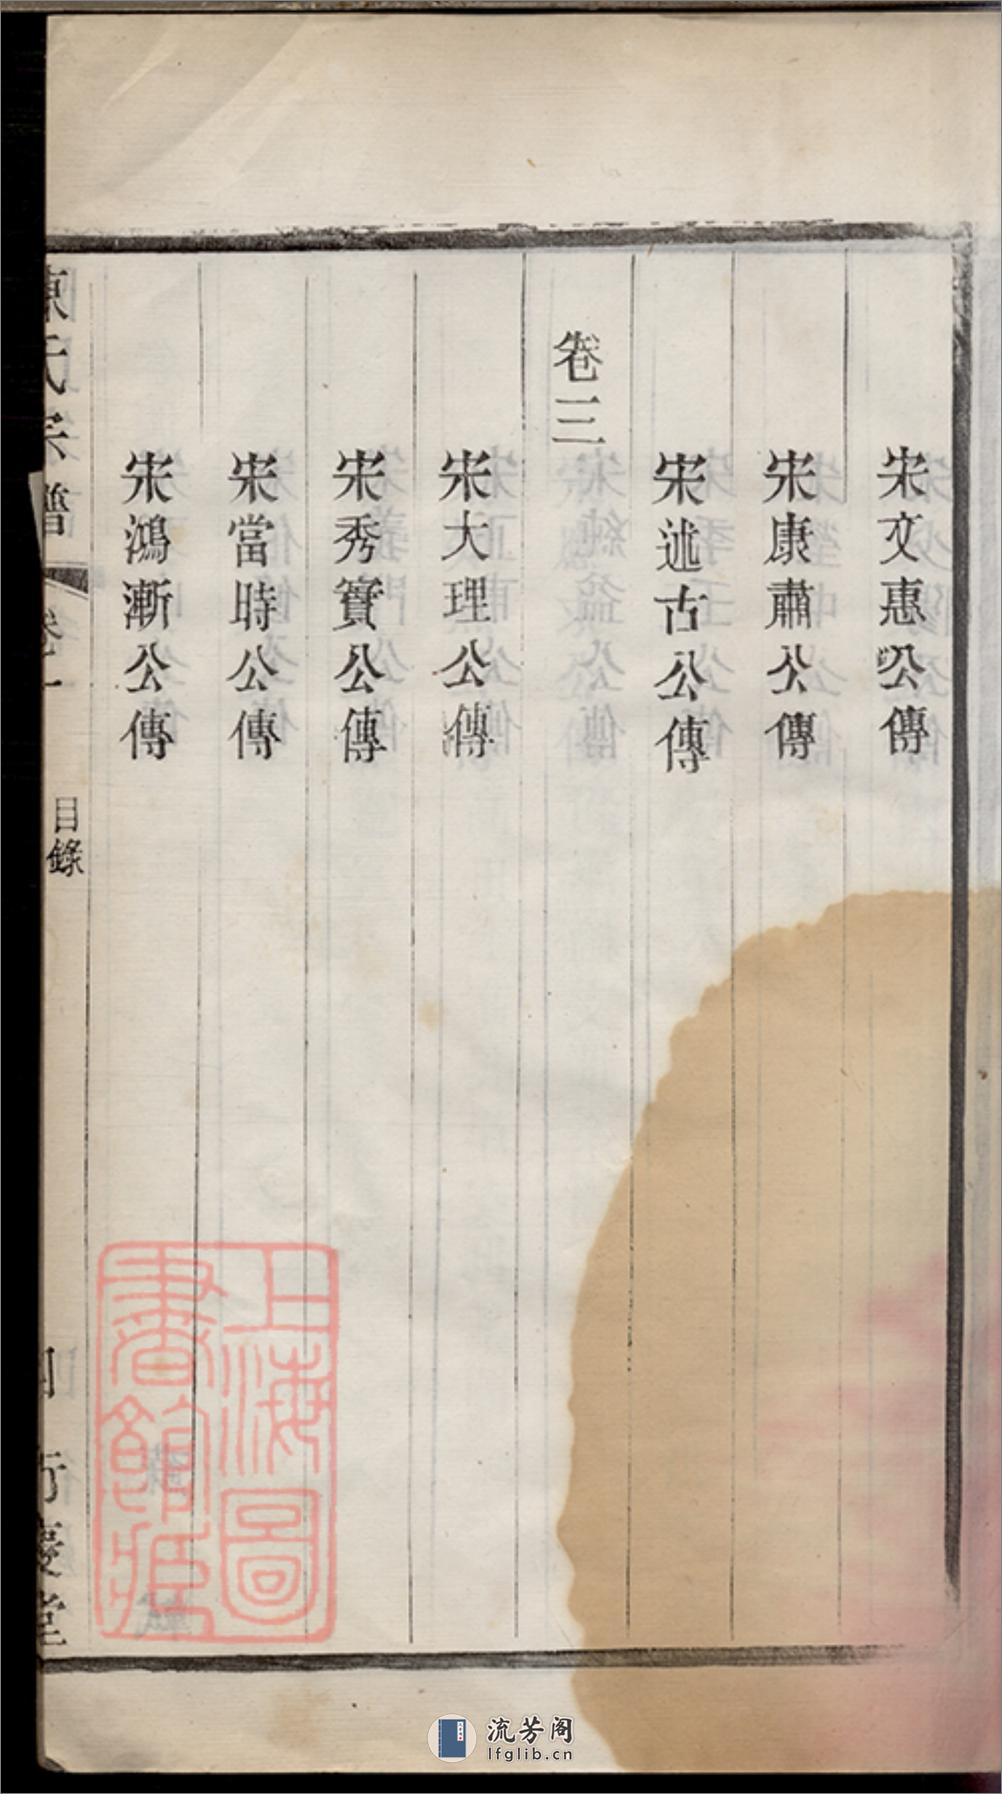 宋文惠公傳
宋康肅公傳
宋述古公傳
卷三
宋大理公傳
宋秀實公傳
宋當時公傳
宋鴻漸公傳
陳氏宗譜
卷一
目錄
行慶堂
上海圖
書館藏
流芳阁
lfglib.cn